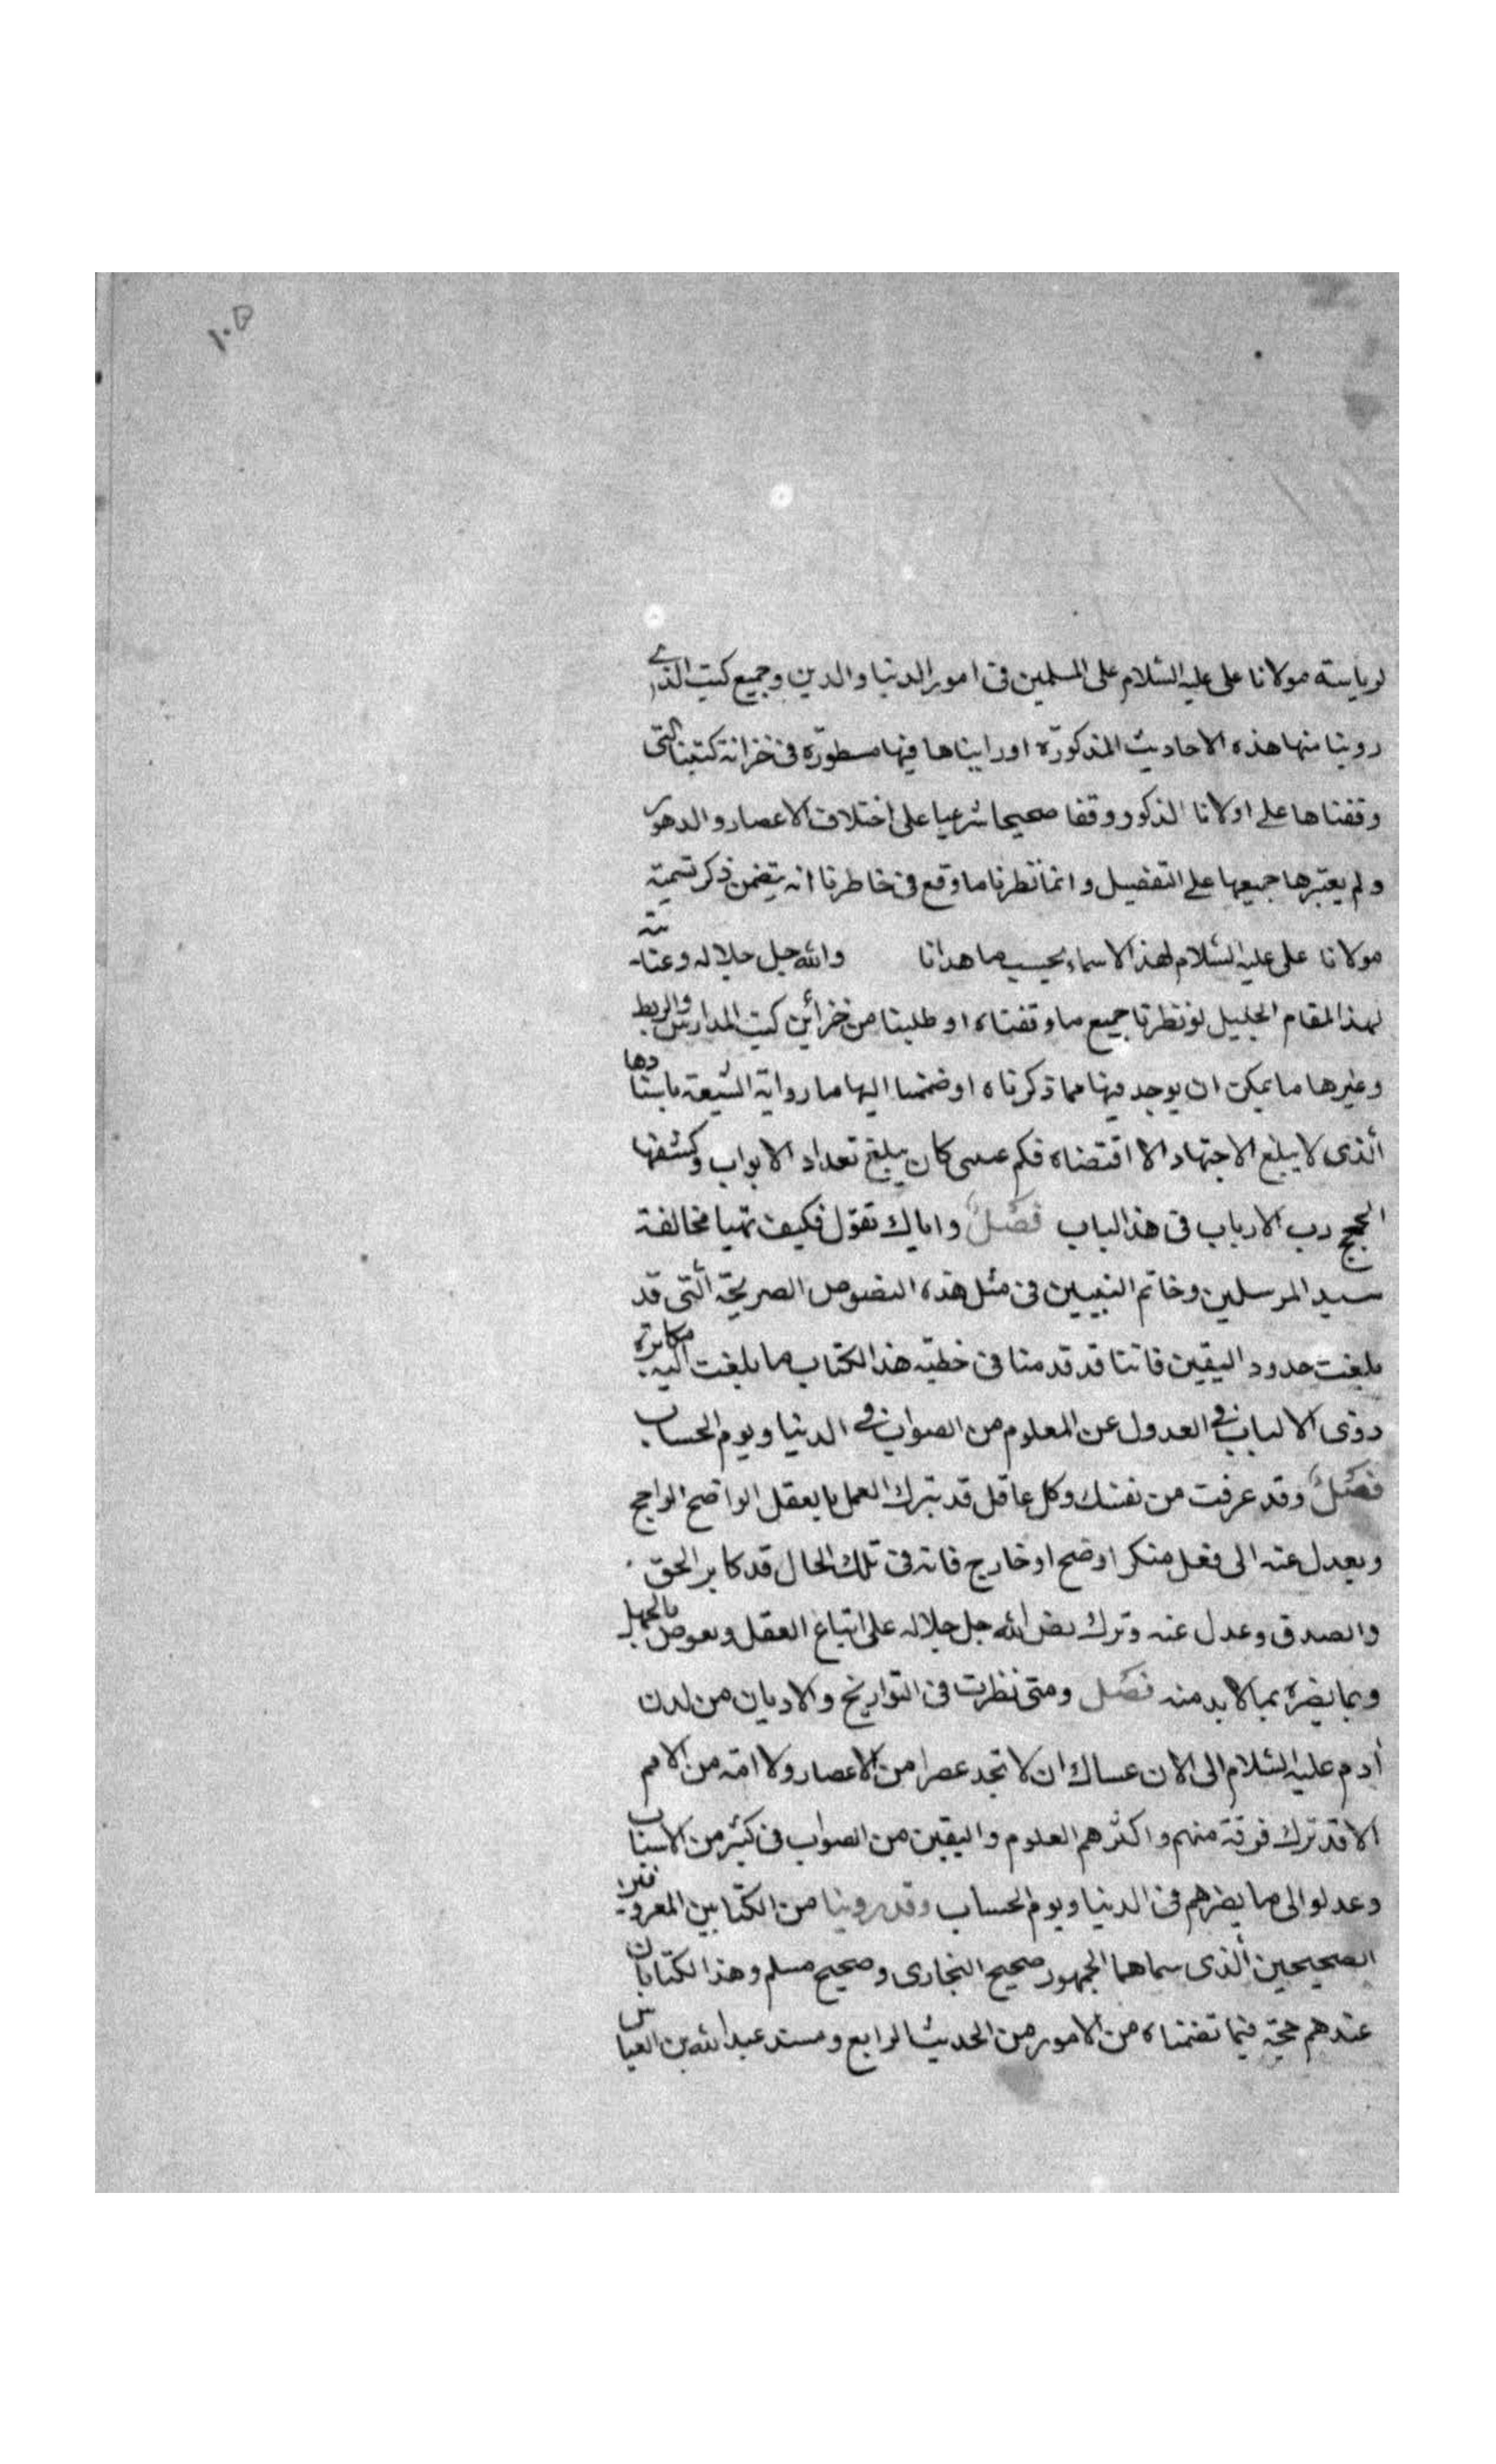 ١٠٥
لرياسة مولانا على عليه السّلام على المسلمين فى امور الدنيا والدين وجميع كتب الذى
روينا منها هذه الاحاديث المذكورّه اوراينا ها فيها مسطورّه فى خزانة كتبنا التى
وقفناها على اولانا الذكور وقفا صحيحا شرعيا على اختلاف الاعصار والدهور
ولم يعتبرها جميعها على التفضيل وانما نظرنا ما وقع فى خاطرنا انه يتضمن ذكر تسمية
مولانا على عليه السّلام لهذ الاسماء بحسب ما هدانا والله جل جلاله وعنايته
لهذ المقام الجليل لو نظرنا جميع ما وقفناه او طلبنا من خزائن كتب المدارس والربط
وغيرها ما يمكن ان يوجد فيها مما ذكرناه او ضممنا اليها ما رواية الشيعة باسنادها
الّذى لا يبلغ الاجتهاد الا اقتضاه فكم عسى كان يبلغ تعداد الابواب وكشفها
الحجج رب الارباب فى هذ الباب فصل واياك تقول فكيف تهيا مخالفة
سيد المرسلين وخاتم النبيين فى مثل هذه النصوص الصريحة الّتى قد
بلغت حدود اليقين فاننا قد قدمنا فى خطبة هذ الكتاب ما بلغت اليه مكابرة
ذوى الالباب فى العدول عن المعلوم من الصواب فى الدنيا ويوم الحساب
فصل وقد عرفت من نفسك وكل عاقل قد يترك العمل بالعقل الواضح الراجح
ويعدل عنه الى فعل منكر اوضح او خارج فانه فى تلك الحال قد كابر الحق
والصدق وعدل عنه وترك نص الله جل جلاله على اتباع العقل وبعوض بالجهل
وبما يضره بما لابد منه فصل ومتى نظرت فى التواريخ والاديان من لدن
أدم عليه السّلام الى الان عساك ان لا تجد عصرا من الاعصار ولا امّه من الامم
الا قد ترك فرقة منهم واكثرهم العلوم واليقين من الصواب فى كثير من الاسباب
وعدلوا الى ما يضرهم فى الدنيا ويوم الحساب وقد روينا من الكتابين المعروفين
الصحيحين الّذى سماهما الجمهور صحيح البخارى وصحيح مسلم وهذ الكتابان
عندهم حجّة فيما تضمناه من الامور من الحديث الرابع ومسند عبد الله بن العباس